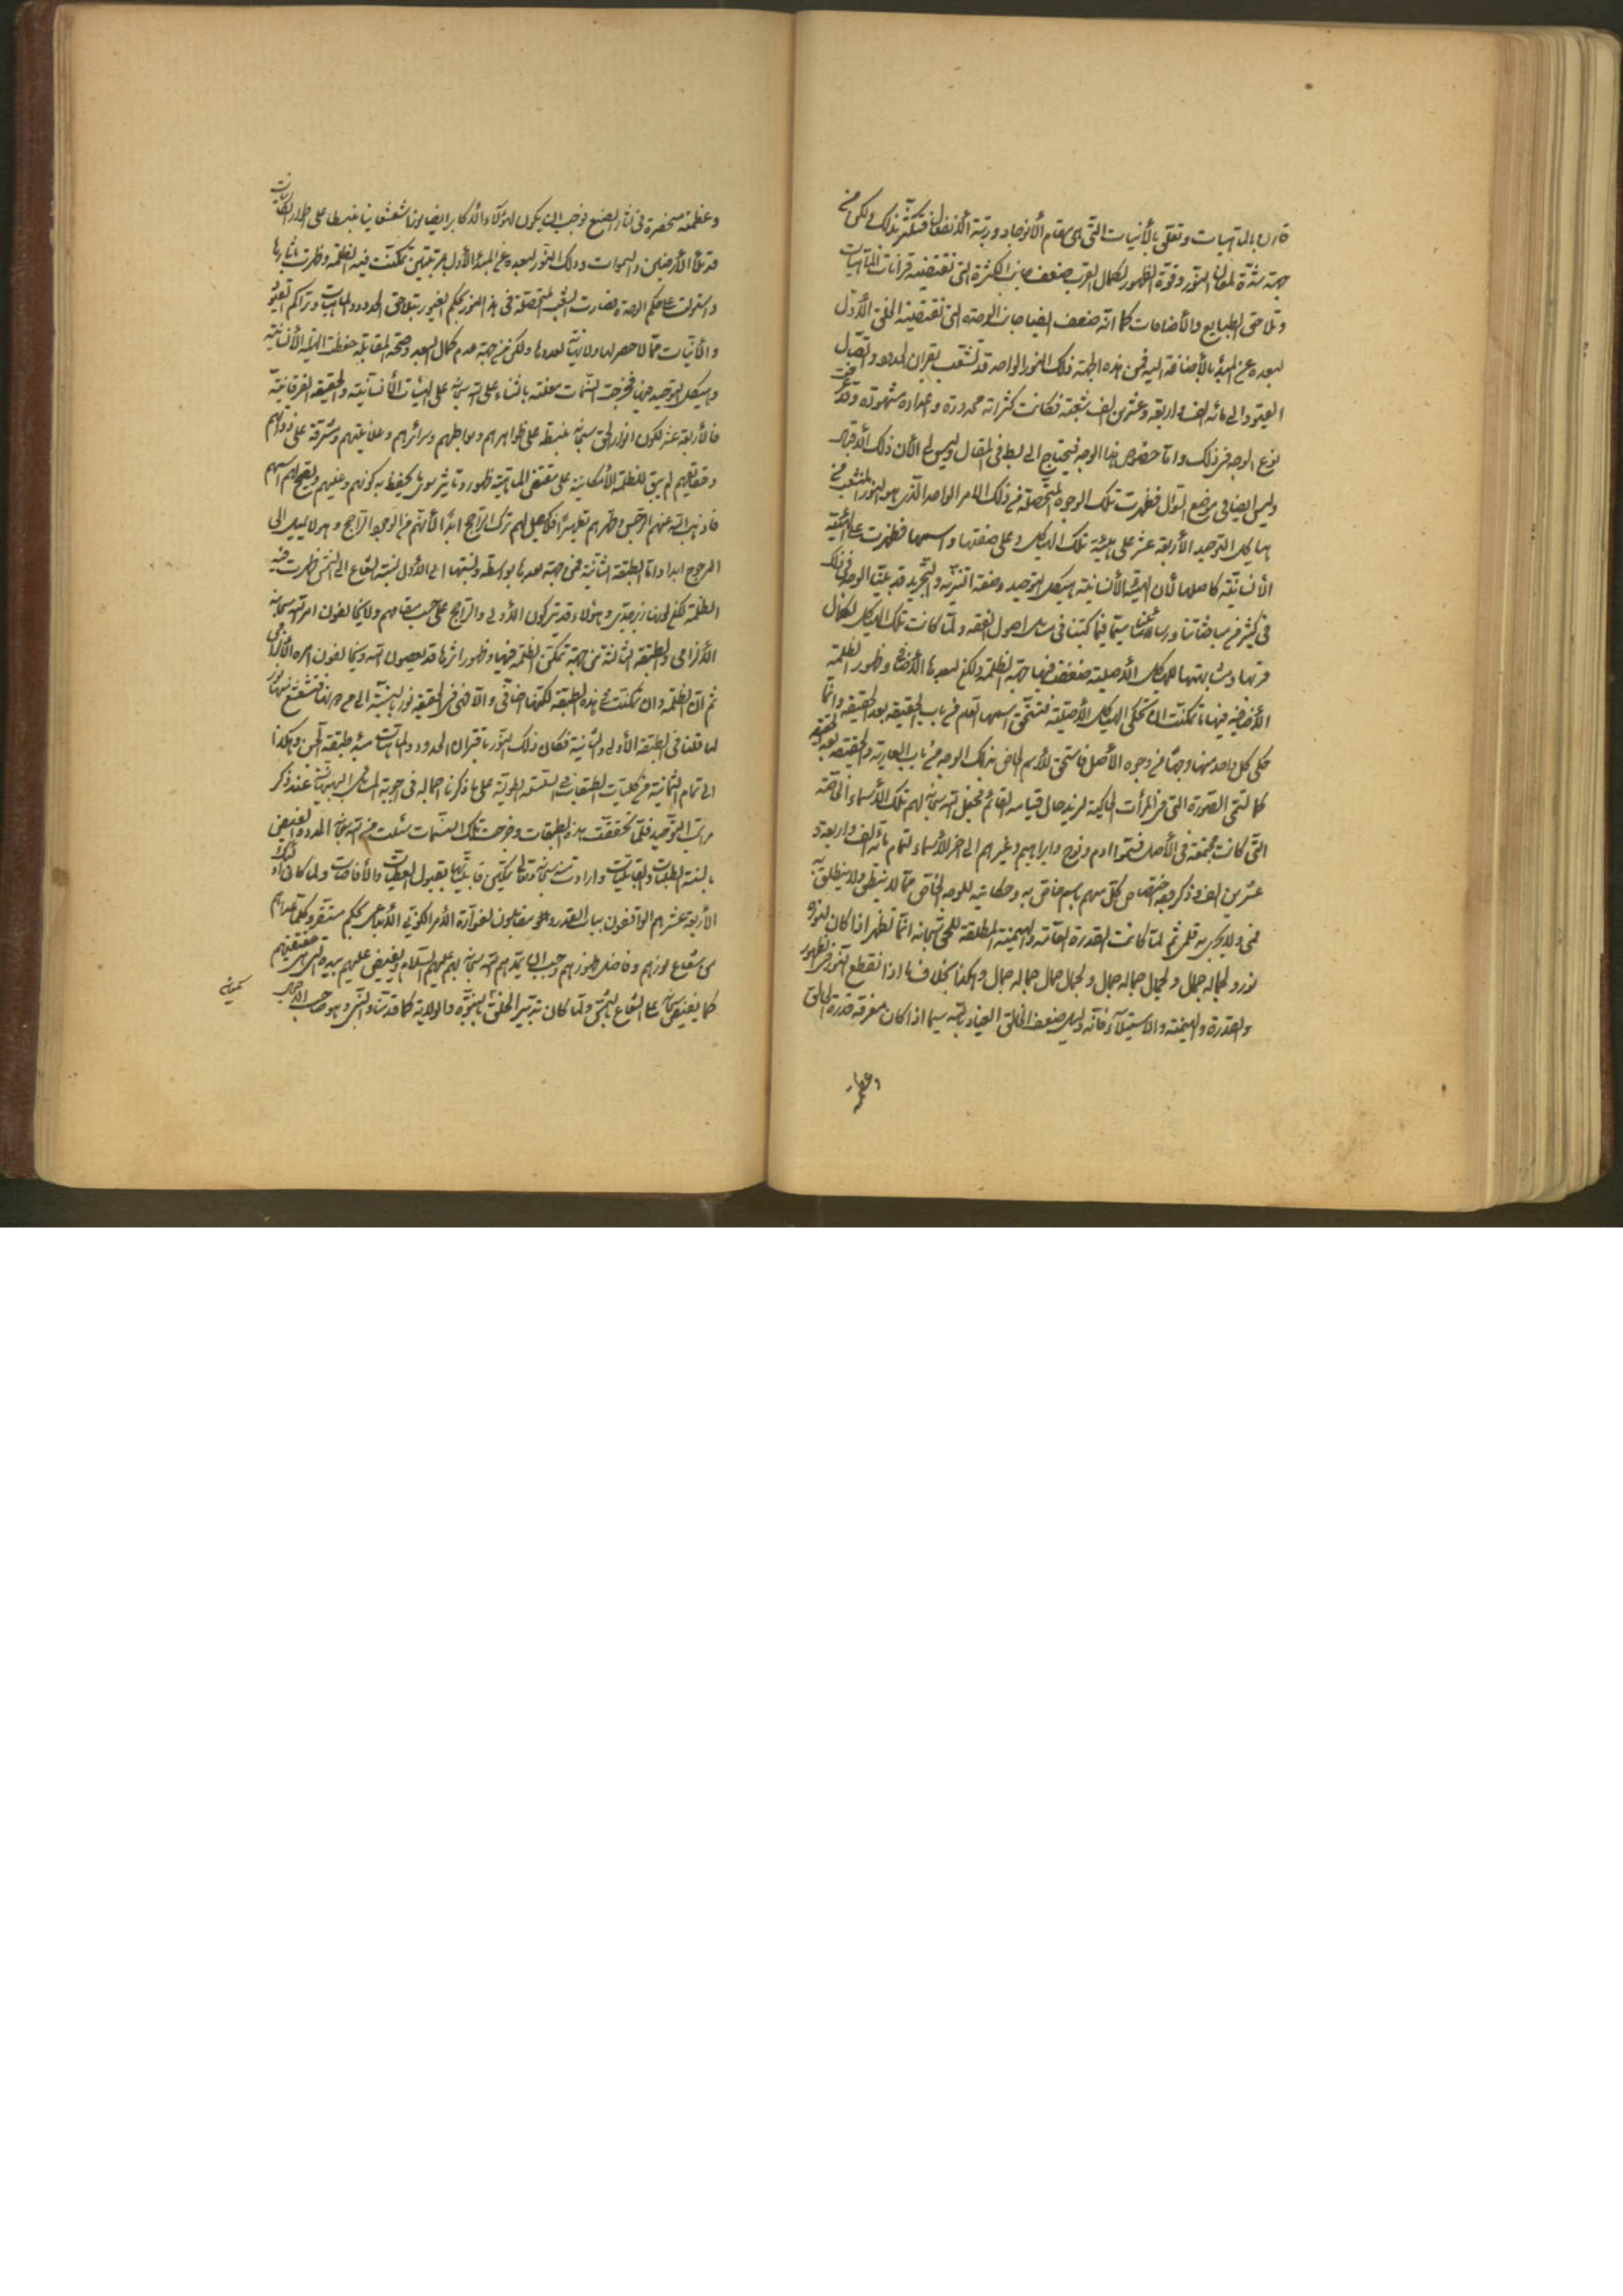 قارن بالماهيات وتعلق بالأنيات التى هى مقام الأنوجاد ورتبة الأنفعال فتكثر بذلك ولكن من
جهة شدة لمعان النور وقوة الظهور لكمال القرب ضعف جانب الكثرة التى تقتضيه قرانات الماهيات
وتلاحق الطبايع والأضافات كما انه ضعف ايضا جانب الوحدة التى تقتضيه الخلق الأول
لبعده عن المبدء بالأضافة اليه فمن هذه الجهة ذلك النور الواحد قد تشعب بقران الحدود واتصال
القيود الى مائة الف واربعة وعشرين الف شعبة فكانت كثراته محدودة واعداده مشهودة وقد
نوع الوجه فى ذلك واما خصوص هذا الوجه فيحتاج الى بسط فى المقال وليس لى الأن ذلك الأقبال
وليس ايضا فى موضع السؤال فظهرت تلك الوجوه المتحصلة من ذلك الامر الواحد الذى هو النور المنشعب من
هياكل التوحيد الأربعة عشر على هيئة تلك الهياكل وعلى صفتها واسمها فظهرت على الهيئة
الأنسانية كاصلها لأن الهيئة الأنسانية هيكل التوحيد وصفة التنزيه والتجريد قد بينا الوجه فى ذلك
فى كثير من مباحثاتنا ورسائلنا سيما فيما كتبنا فى مسائل اصول الفقه ولما كانت تلك الهياكل لكمال
قربها ومشابهتها للهياكل الأصلية ضعفت فيها جهة الظلمة ولكن لبعدها الأضافى وظهور الظلمة
الأضافية فيها ما تمكنت ان تحكى الهياكل الأصلية فتستحق اسمها العلم من باب الحقيقة بعد الحقيقة وانما
حكى كل واحد منها وجها من وجوه الأصل فاستحق للأسم الخاص بذلك الوجه من باب العارية والحقيقة بعد الحقيقة
كما تسمى الصورة التى فى المرأت الحاكية لزيد حال قيامه القائم فجعل الله سبحانه لهم تلك الأسماء الخاصة
التى كانت مجتمعة فى الأصل فسموا ادم ونوح وابراهيم وغيرهم الى اخر الأسماء لتمام مائة الف واربعة و
عشرين الف وذكر وجه اختصاص كل منهم باسم خاص به وحكايته للوجه الخاص مما لا ينبغى ولا ينطلق به
فمى ولا يجرى به قلمى ثم لما كانت القدرة العامة والهيمنة المطلقة للحق سبحانه انما تظهر اذا كان لنوره
نور ولجماله جمال ولجمال جماله جمال ولجمال جمال جماله جمال وهكذا بخلاف ما اذا انقطع النور فى ظهور
والقدرة والهيمنة والاستيلاء فانه دليل ضعف الخالق العياذ بالله سيما اذا كان معرفة قدرة الخالق
وعظمته
وعظمته منحصرة فى اثار الصنع فوجب ان يكون لهؤلاء الأكابر ايضا نورا شعشعانيا منبسطا على اطوار الكائنات
قد ملأ الأرضين والسموات وذلك النور لبعده عن المبدء الأول بمرتبتين تمكنت فيه الظلمة وظهرت اثارها
واستولت على حكم الوحدة وصارت الشعب المتحصلة فى هذا النور بحكم الغيور بتلاحق الحدود والماهيات وتراكم القيود
والأنيات مما لا حصر لها ولا نهاية لعددها ولكن من جهة عدم كمال البعد وصحة المقابلة حفظت الهيئة الأنسانية
وهيكل التوحيد فيها فخرجت النسمات معلنة بالثناء على الله سبحانه على الهيئات الأنسانية والحقيقة الفرقانية
فالأربعة عشر لكون انوار الحق سبحانه منبسطة على ظواهرهم وبواطنهم وسرائرهم وعلانيتهم ومشرقة على ذواتهم
وحقائقهم لم يبق للظلمة الأمكانية على مقتضى الماهية ظهور وتاثير سوى ما يحفظ به كونهم وعينهم ويصح لهم اسمهم
فاذهب الله عنهم الرجس وطهرهم تطهيرا فلا يمكن لهم ترك الراجح ابدا لأنهم من الوجود الراجح وهو لا يميل الى
المرجوح ابدا واما الطبقة الثانية فمن جهة بعدها بواسطة ونسبتها الى الأول نسبة الشعاع الى الشمس ظهرت فيه
الظلمة لكن لونها زبرجدى وهؤلاء قد يتركون الأولى والراجح على حسب مقامهم ولا يخالفون امر الله سبحانه
الألزامى والطبقة الثالثة فمن جهة تمكن الظلمة فيها وظهور اثرها قد يعصون الله ويخالفون امره الألزامى
ثم ان الظلمة وان تمكنت فى هذه الطبقة لكنها اضافى والا فهى فى الحقيقة نور بالنسبة الى من دونها فتشعشع منها نور
لما قلنا فى الطبقة الأولى والثانية فكان ذلك النور باقتران الحدود والماهيات مبدء طبقة الجن وهكذا
الى تمام الثمانية من كليات الطبقات فى السلسلة الطولية على ما ذكرنا اجماله فى اجوبة المسائل البهبهانية عند ذكر
مراتب التوحيد فلما تحققت هذه الطبقات وخرجت تلك النسمات سئلت من الله سبحانه المدد والفيض
بالسنة الطلبات والقابليات وارادت منه سبحانه وتعالى تمكين قابلياتها بقبول العطيات والأفاضات ولما كان اولئك
الأربعة عشر هم الواقفون بباب القدر وهم مقابلون لفوارة الأمر الكونى الألهى بحكم مستقر وكلما سواهم
من شعاع نورهم وفاضل ظهورهم وجب ان يمدهم الله سبحانه بهم عليهم السلام ويفيض عليهم بيده التى هى حقيقتهم
كما يفيض سبحانه على الشعاع بالشمس ولما كان تدبير الخلق بالنبوة والولاية كما قدمنا والنبى وهو صاحب الأجمال